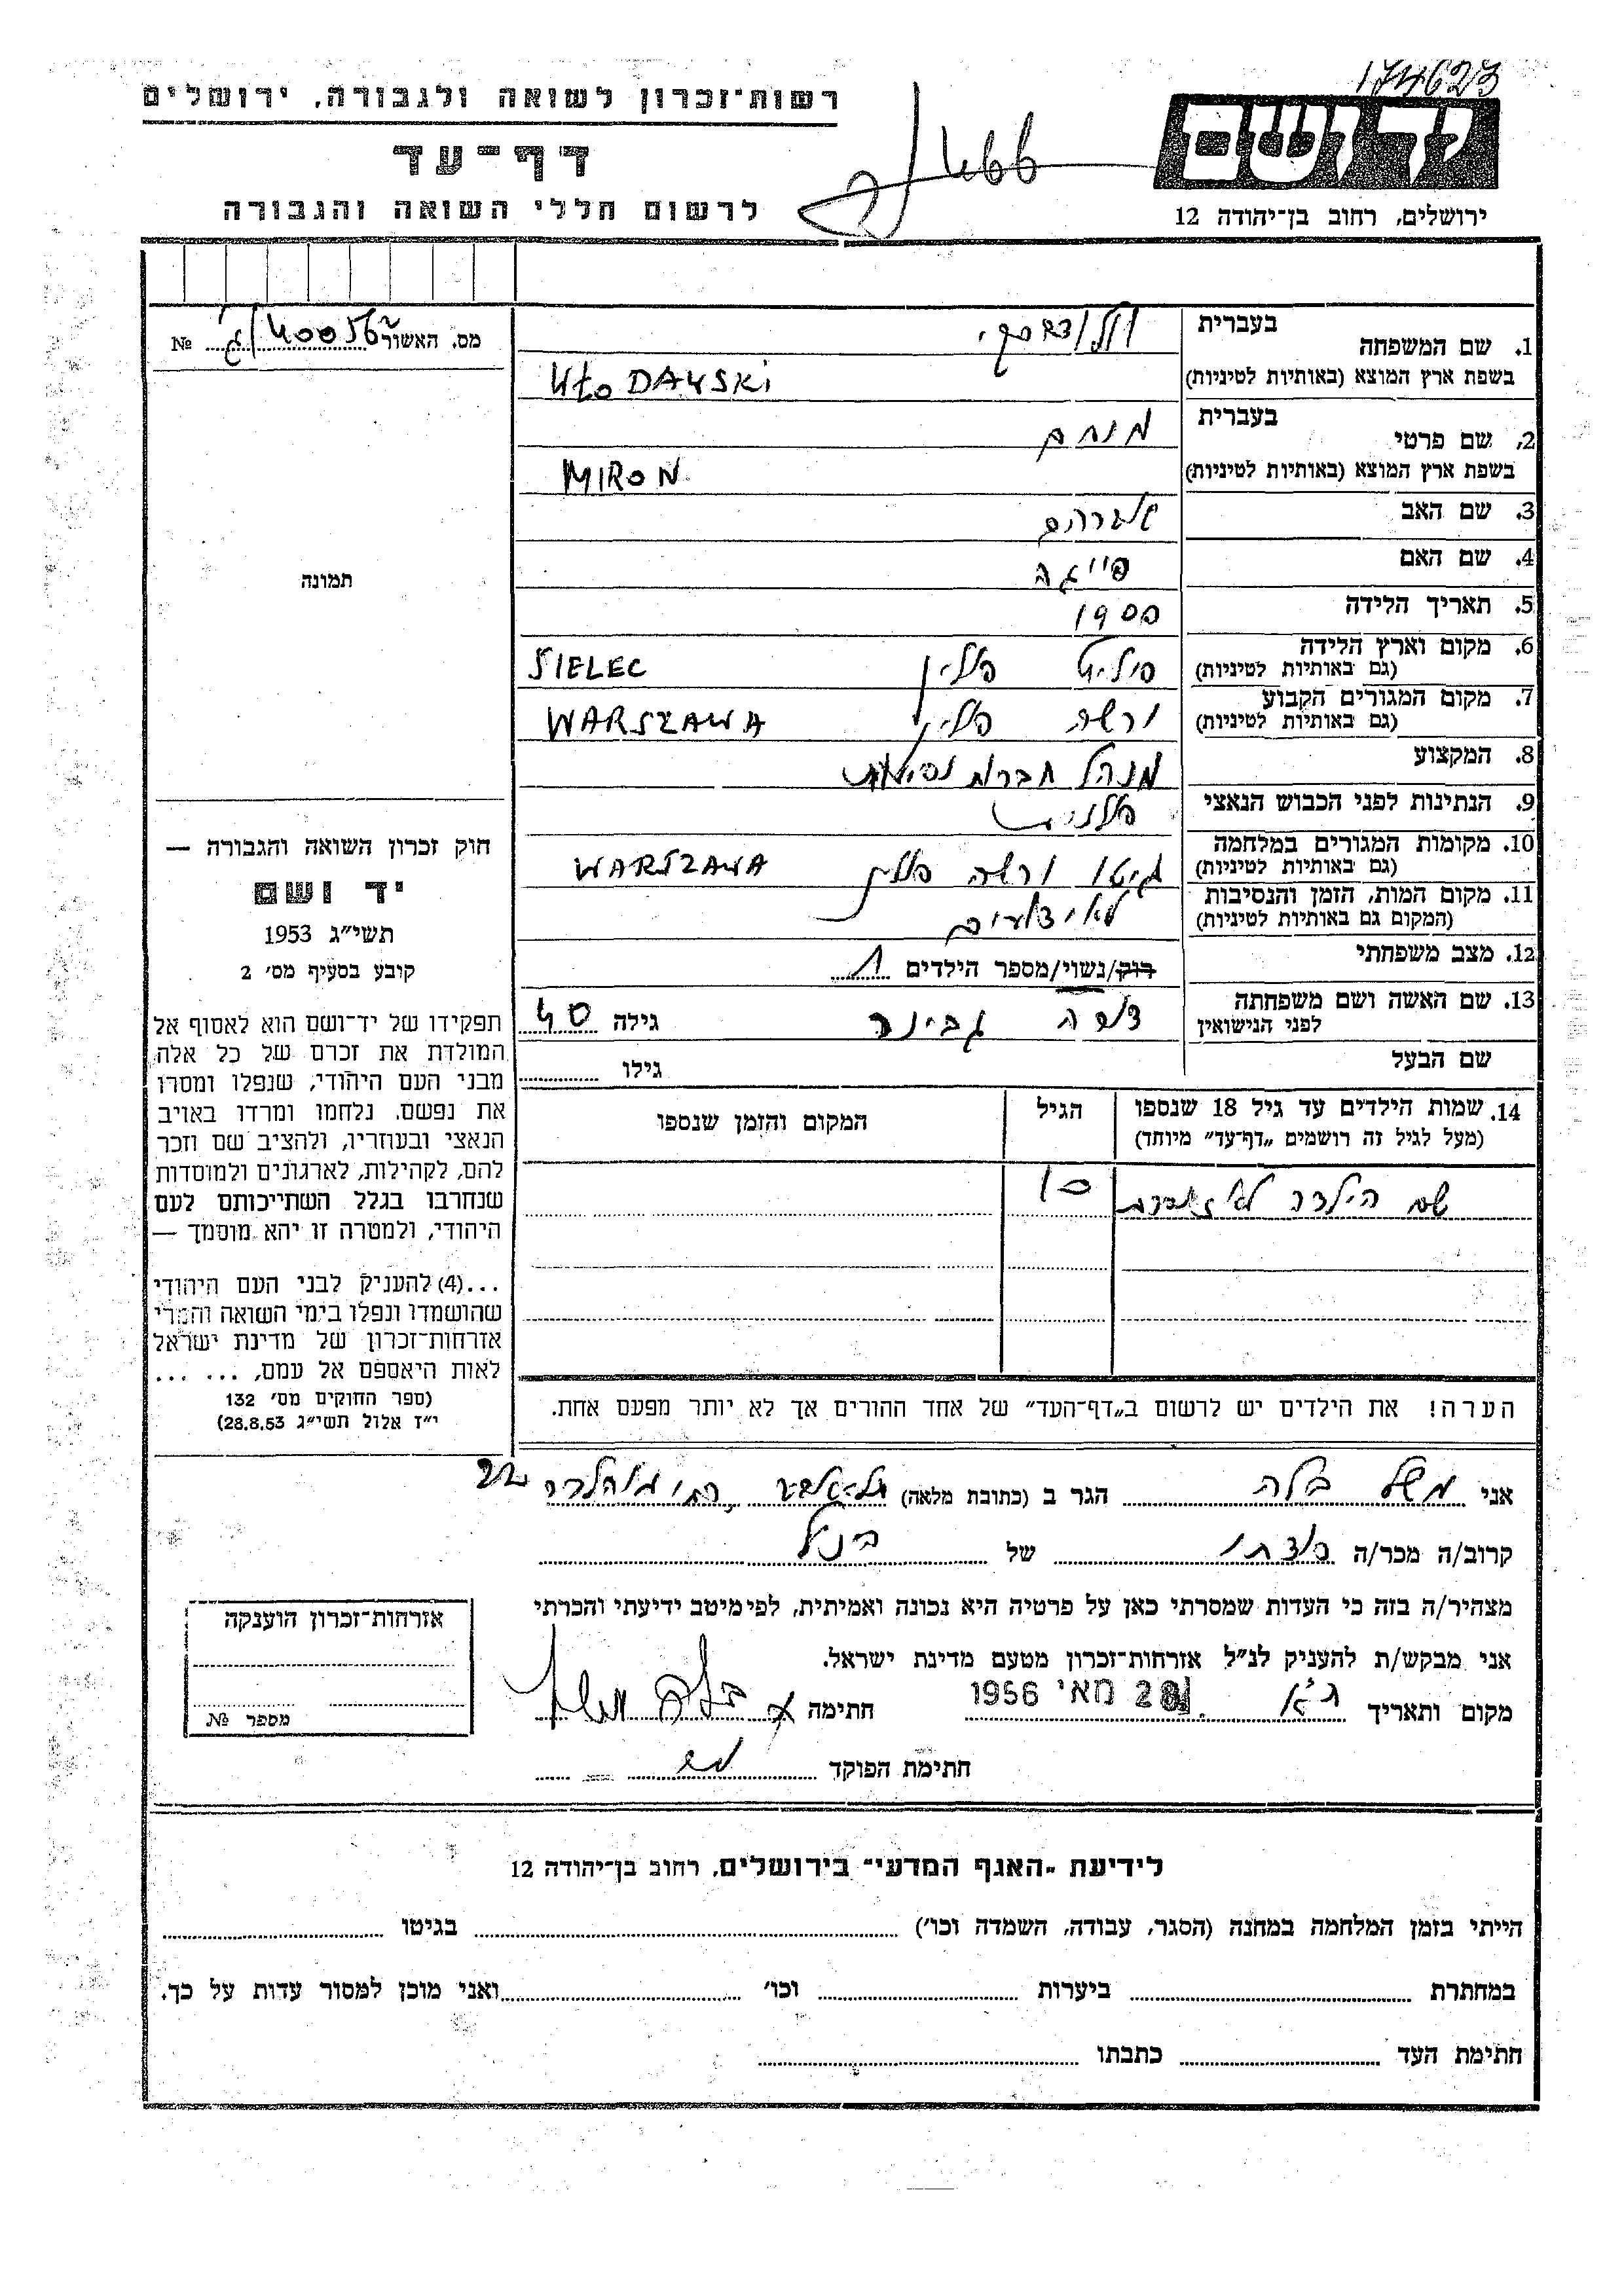 174623
רשות-זכרון לשואה ולגבורה, ירושלים
דף-עד
לרשום חללי השואה והגבורה
ידושם
ירושלים, רחוב בן-יהודה 12
מס. האשור 40056 №
בעברית
1. שם המשפחה
בשפת ארץ המוצא (באותיות לטיניות) WŁODAWSKI
בעברית
2. שם פרטי מנחם
בשפת ארץ המוצא (באותיות לטיניות) MIRON
3. שם האב אברהם
4. שם האם פייגה
5. תאריך הלידה 1900
6. מקום וארץ הלידה פולין SIELEC
(גם באותיות לטיניות)
7. מקום המגורים הקבוע ורשה פולין WARSZAWA
(גם באותיות לטיניות)
8. המקצוע מנהל חברת נסיעות
9. הנתינות לפני הכבוש הנאצי פולנית
10. מקומות המגורים במלחמה גיטו ורשה פולין WARSZAWA
(גם באותיות לטיניות)
11. מקום המות, הזמן והנסיבות לא יודעים
(המקום גם באותיות לטיניות)
12. מצב משפחתי רוק/נשוי/מספר הילדים 1
13. שם האשה ושם משפחתה גילה 40
לפני הנישואין
שם הבעל גילו
14. שמות הילדים עד גיל 18 שנספו הגיל המקום והזמן שנספו
(מעל לגיל זה רושמים „דף-עד” מיוחד)
שם הילדה לא זוכרת 10
הערה! את הילדים יש לרשום ב„דף-העד” של אחד ההורים אך לא יותר מפעם אחת.
תמונה
חוק זכרון השואה והגבורה —
יד ושם
תשי״ג 1953
קובע בסעיף מס׳ 2
תפקידו של יד-ושם הוא לאסוף אל
המולדת את זכרם של כל אלה
מבני העם היהודי, שנפלו ומסרו
את נפשם, נלחמו ומרדו באויב
הנאצי ובעוזריו, ולהציב שם וזכר
להם, לקהילות, לארגונים ולמוסדות
שנחרבו בגלל השתייכותם לעם
היהודי, ולמטרה זו יהא מוסמך —
...(4) להעניק לבני העם היהודי
שהושמדו ונפלו בימי השואה והמרי
אזרחות-זכרון של מדינת ישראל
לאות היאספם אל עמם, ... ...
(ספר החוקים מס׳ 132
י״ז אלול תשי״ג 28.8.53)
אני משל בלה הגר ב (כתובת מלאה) תל אביב 22
קרוב/ה מכר/ה של הנ״ל
מצהיר/ה בזה כי העדות שמסרתי כאן על פרטיה היא נכונה ואמיתית, לפי מיטב ידיעתי והכרתי
אני מבקש/ת להעניק לנ״ל אזרחות-זכרון מטעם מדינת ישראל.
מקום ותאריך ת״א 28 מאי 1956 חתימה בלה משל
חתימת הפוקד
אזרחות-זכרון הוענקה
מספר №
לידיעת „האגף המדעי” בירושלים, רחוב בן-יהודה 12
הייתי בזמן המלחמה במחנה (הסגר, עבודה, השמדה וכו׳) בגיטו
במחתרת ביערות וכו׳ ואני מוכן למסור עדות על כך.
חתימת העד כתבתו